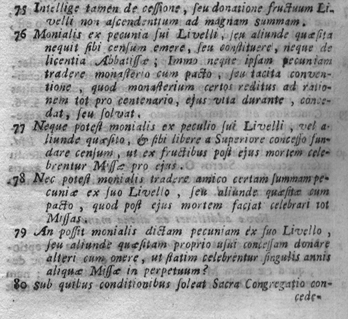 75 Intellige tamen de cessione, seu donatione fructuum Li-
velli non ascendentium ad magnam summam.
76 Monialis ex pecunia sui Livelli, seu aliunde quæsita
nequit sibi censum emere, seu constituere, neque de
licentia Abbatissæ; Immo neque ipsam pecuniam
tradere monasterio cum pacto, seu tacita conven-
tione, quod monasterium certos reditus ad ratio-
nem tot pro centenario, ejus vita durante, conce-
dat, seu solvat.
77 Neque potest monialis ex peculio sui Livelli, vel a-
liunde quæsito, & sibi libere a Superiore concesso fun-
dare censum, ut ex fructibus post ejus mortem cele-
brentur Missæ pro ejus.
78 Nec potest monialis tradere amico certam summam pe-
cuniæ ex suo Livello, seu aliunde quæsitæ cum
pacto, quod post ejus mortem faciat celebrari tot
Missas.
79 An possit monialis dictam pecuniam ex suo Livello,
seu aliunde quæsitam proprio usui concessam donare
alteri cum onere, ut statim celebrentur singulis annis
aliquæ Missæ in perpetuum?
80 Sub quibus conditionibus soleat Sacra Congregatio con-
cede-